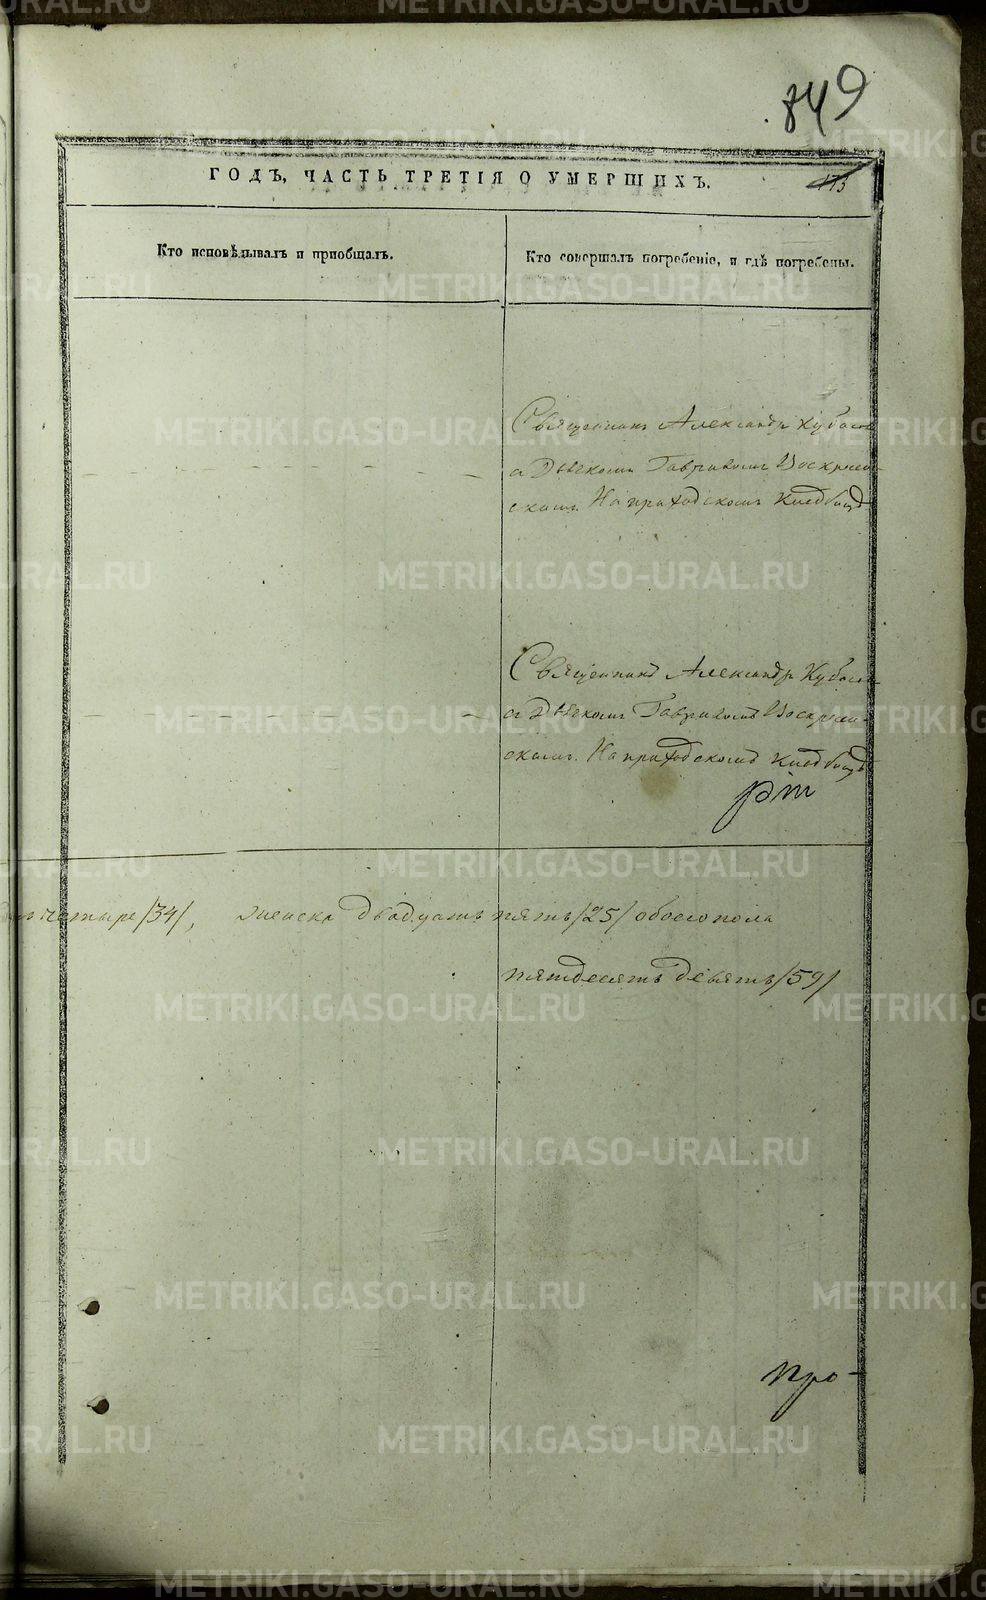 849
ГОДЪ, ЧАСТЬ ТРЕТІЯ О УМЕРШИХЪ.
173
Кто исповѣдывалъ и пріобщалъ.
Кто совершалъ погребеніе, и гдѣ погребены.
Священникъ Александръ
съ Дьякомъ Гавриломъ Воскресен-
скимъ. На приходскомъ кладбищѣ
Священникъ Александръ
съ Дьякомъ Гавриломъ Воскресен-
скимъ. На приходскомъ кладбищѣ
четыре /34/, женска двадцать пять /25/ обоего пола
пятдесятъ девять /59/
про-
METRIKI.GASO-URAL.RU